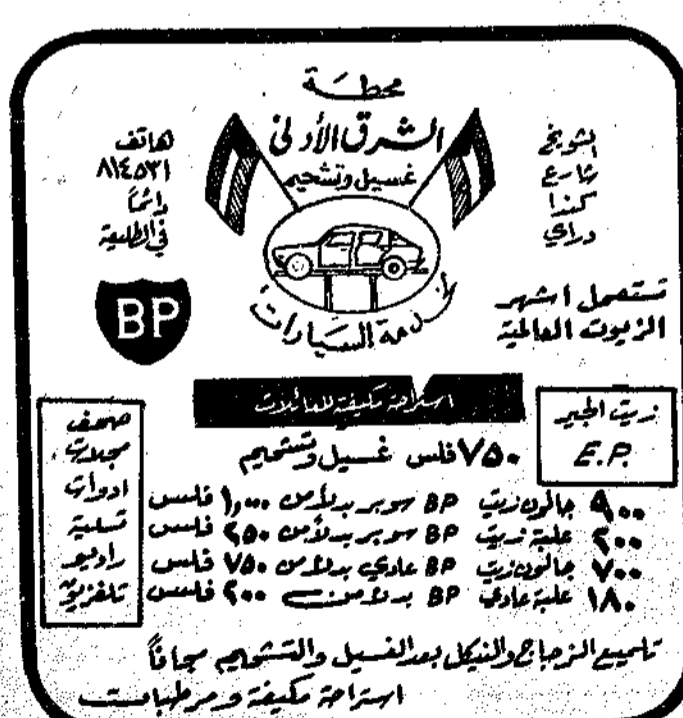 محطة
الشرق الأدنى
غسيل وتشحيم
لخدمة السيارات
الشويخ
شارع
كندا
دراي
هاتف
٨١٤٥٣١
دائماً
في الطليعة
BP
تستعمل اشهر
الزيوت العالمية
استراحة مكيفة للعائلات
زيت الجير
E.P.
٧٥٠ فلس غسيل وتشحيم
صحف
مجلات
ادوات
تسلية
راديو
تلفزيون
٩٠٠ جالون زيت BP سوبر بدلاً من ١,٠٠٠ فلس
٢٠٠ علبة زيت BP سوبر بدلاً من ٢٥٠ فلس
٧٠٠ جالون زيت BP عادي بدلاً من ٧٥٠ فلس
١٨٠ علبة عادي BP بدلاً من ٢٠٠ فلس
تلميع الزجاج والنيكل بعد الغسيل والتشحيم مجاناً
استراحة مكيفة ومرطبات